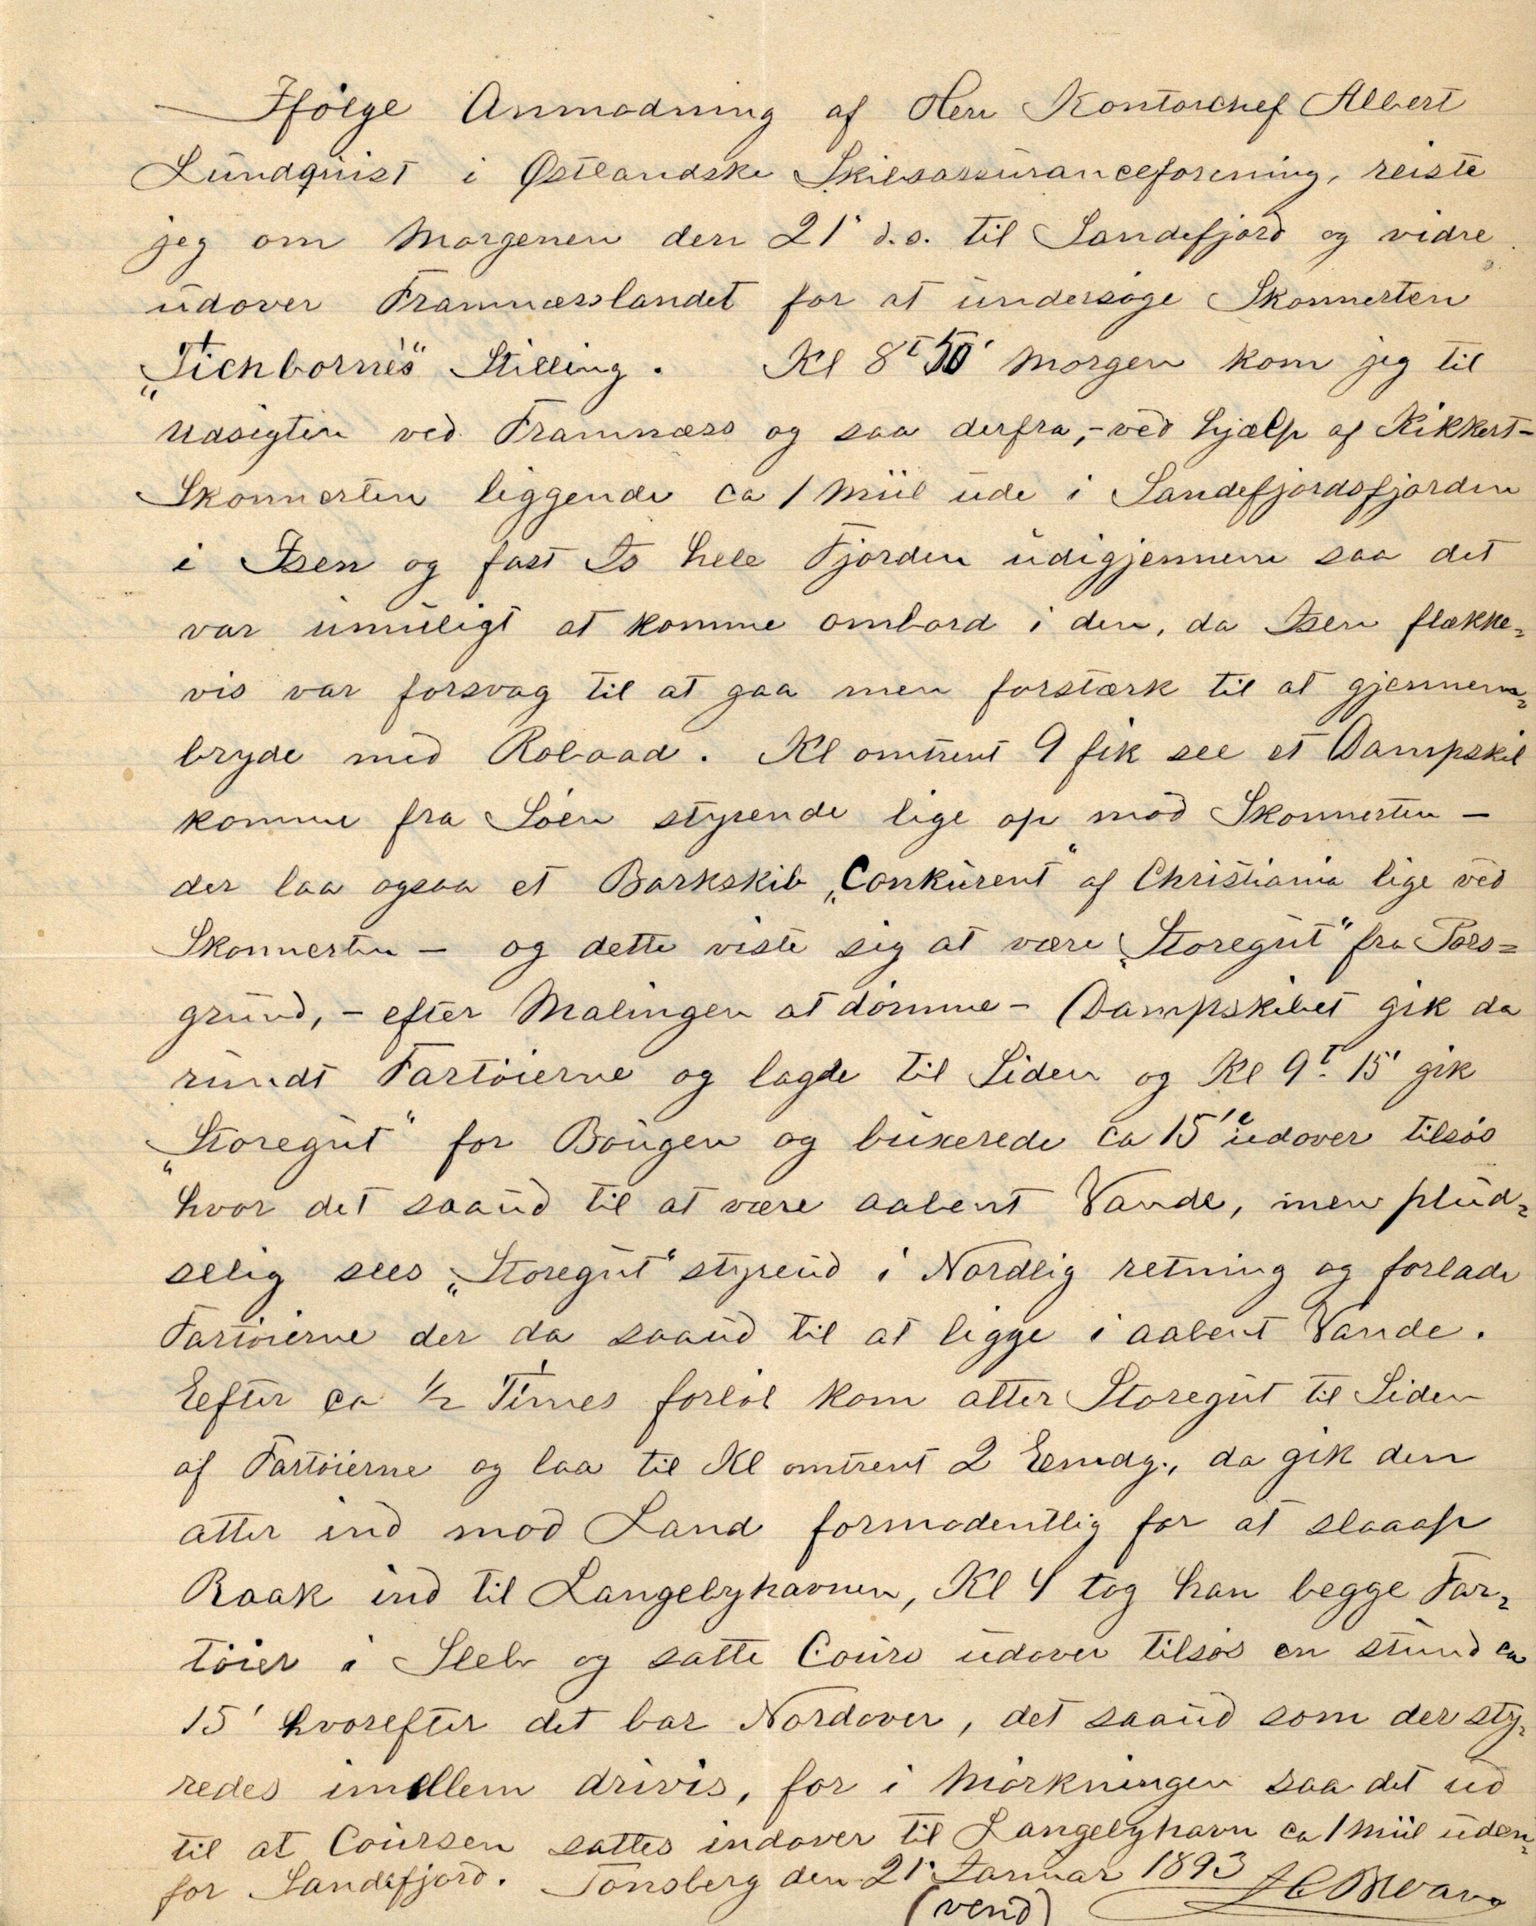 Ifølge Anmodning af Herr Kontorchef Albert
Lundquist i Østlandske Skibsassuranceforening, reiste
jeg om Morgenen den 21' d.s. til Sandefjord og vidre
udover Framnæsslandet for at undersøge Skonnerten
"Tichbornes" Stilling. Kl 8t 50' Morgen kom jeg til
Udsigten ved Framnæss og saa derfra, - ved hjælp af Kikkert -
Skonnerten liggende ca 1 Miil ude i Sandefjordsfjorden
i Isen og fast Is hele Fjorden udigjennem saa det
var umuligt at komme ombord i den, da Isen flække-
vis var forsvag til at gaa men forstærk til at gjennem-
bryde med Robaad. Kl omtrent 9 fik see et Dampskib
komme fra Søen styrende lige op mod Skonnerten -
der laa ogsaa et Barkskib "Conkurent" af Christiania lige ved
Skonnerten - og dette viste sig at være "Storegut" fra Pors=
grund, - efter Malingen at dømme - Dampskibet gik da
rundt Fartøierne og lagde til Siden og Kl 9t. 15' gik
"Storegut" for Bougen og buxerede ca 15' udover tilsøs
hvor det saaud til at være aabent Vande, men plud-
selig sees "Storegut" styrend i Nordlig retning og forlade
Fartøierne der da saaud til at ligge i aabent Vande.
Eefter ca 1/2 Times forløb kom atter Storegut til Siden
af Fartøierne og laa til Kl omtrent 2 Eemdg., da gik den
atter ind mod Land formodentlig for at slaaop
Raak ind til Langebyhavnen, Kl 4 tog han begge Far-
tøier i Sleb og satte Cours udover tilsøs en stund ca
15' hvorefter det bar Nordover, det saaud som der sty-
redes imellem drivis, for i Mørkningen saa det ud
til at Coursen sattes indover til Langebyhavn ca 1 Miil uden-
for Sandefjord. Tønsberg den 21' Januar 1893
(vend)